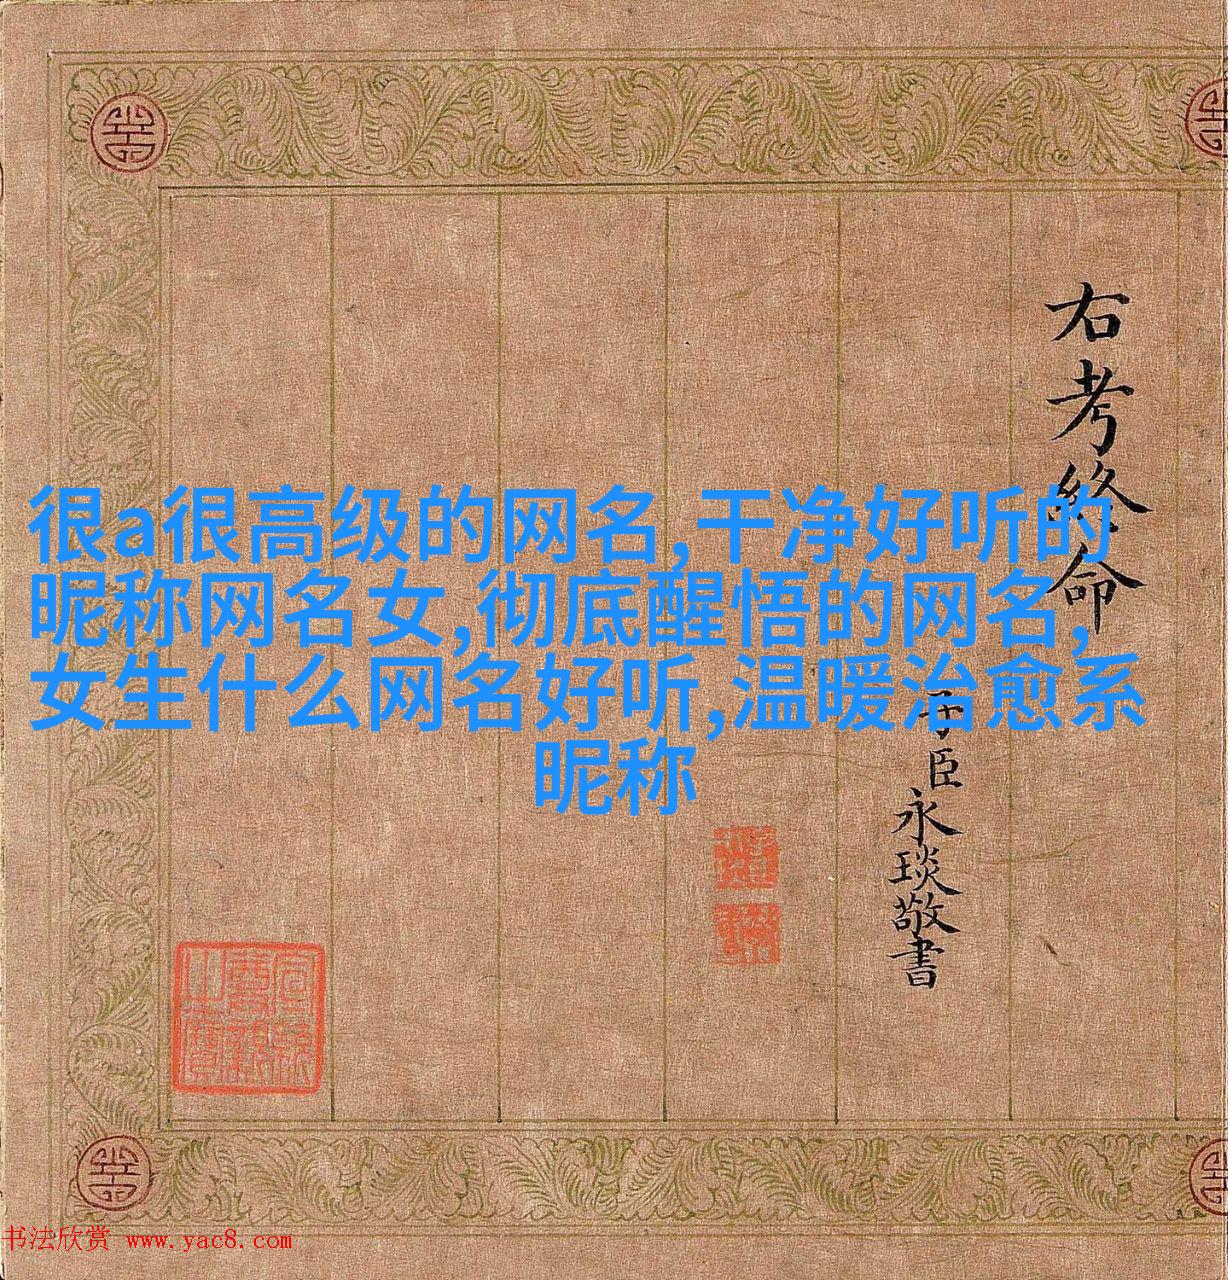 很a很高级的网名,干净好听的
昵称网名女,彻底醒悟的网名,
女生什么网名好听,温暖治愈系
昵称
右考終命
子臣永琰敬書
宣統御覽之寶
书法欣赏 www.yac8.com